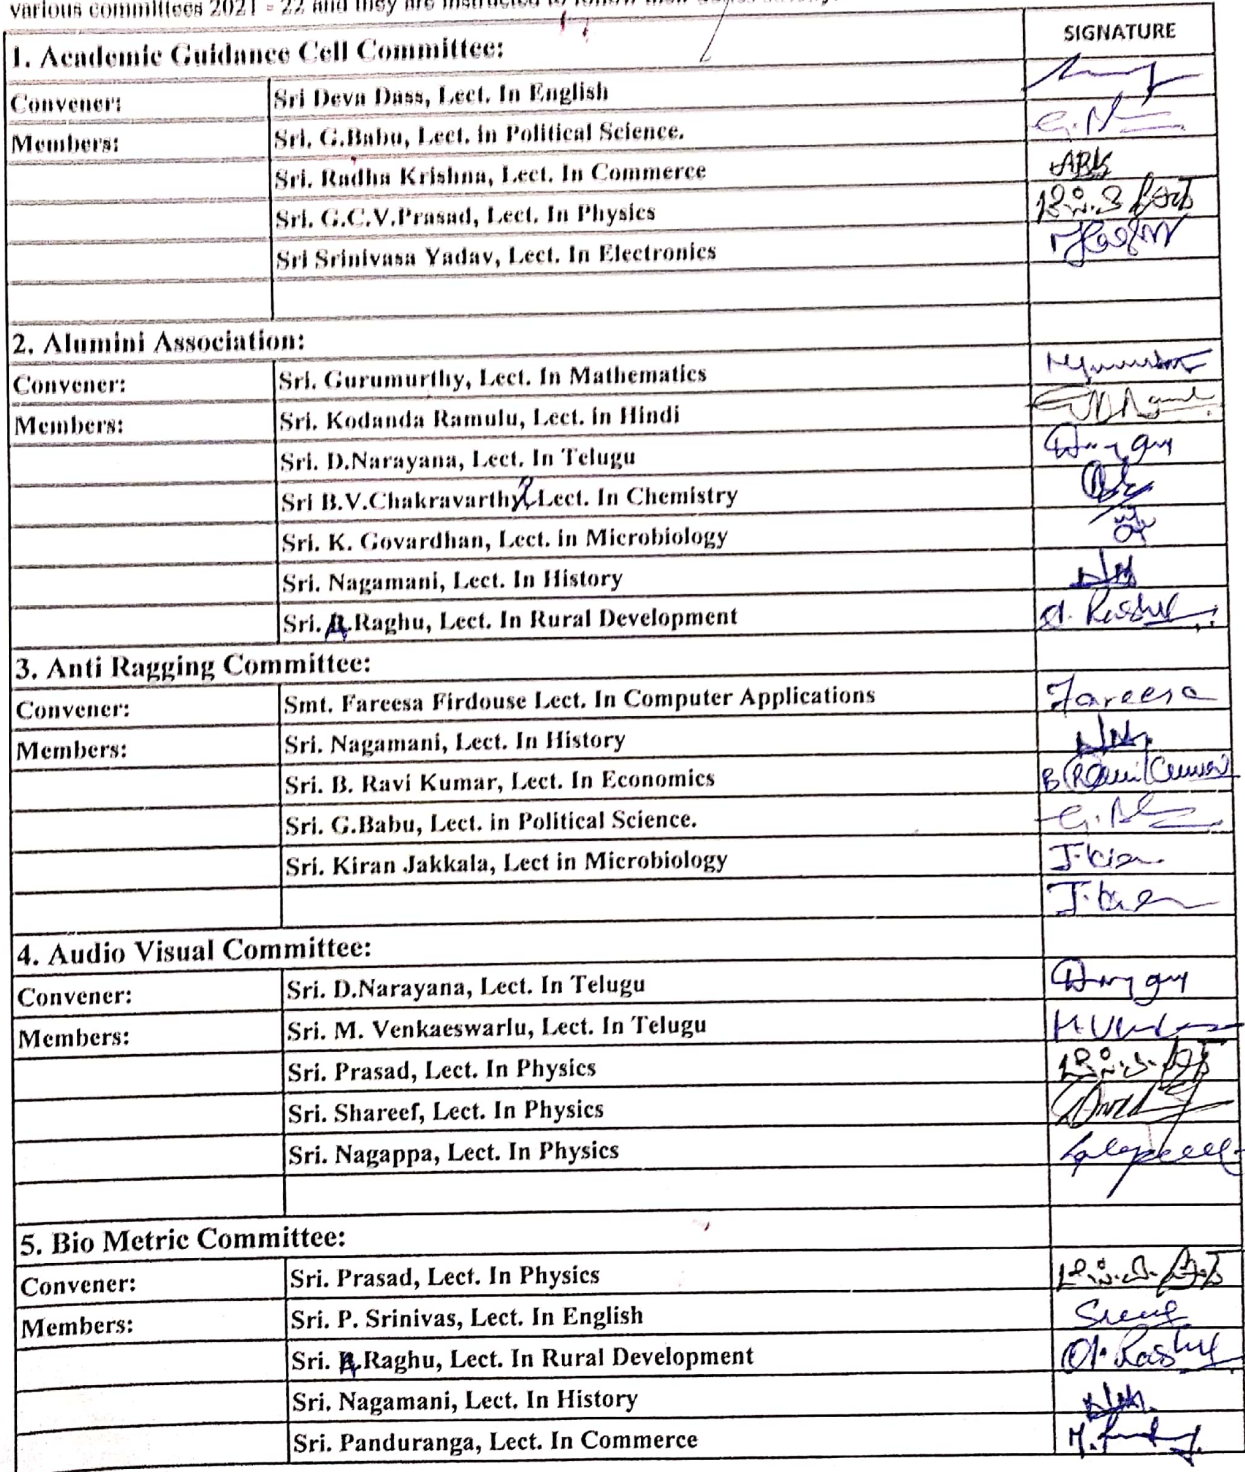 various committees 2021 - 22 and they are instructed to follow their
1. Academic Guidance Cell Committee: SIGNATURE
Convener: Sri Deva Dass, Lect. In English
Members: Sri. G.Babu, Lect. in Political Science.
Sri. Radha Krishna, Lect. In Commerce ARK
Sri. G.C.V.Prasad, Lect. In Physics
Sri Srinivasa Yadav, Lect. In Electronics
2. Alumini Association:
Convener: Sri. Gurumurthy, Lect. In Mathematics
Members: Sri. Kodanda Ramulu, Lect. in Hindi
Sri. D.Narayana, Lect. In Telugu
Sri B.V.Chakravarthy Lect. In Chemistry
Sri. K. Govardhan, Lect. in Microbiology
Sri. Nagamani, Lect. In History
Sri. A.Raghu, Lect. In Rural Development
3. Anti Ragging Committee:
Convener: Smt. Fareesa Firdouse Lect. In Computer Applications Fareesa
Members: Sri. Nagamani, Lect. In History
Sri. B. Ravi Kumar, Lect. In Economics B Ravi Kumar
Sri. G.Babu, Lect. in Political Science.
Sri. Kiran Jakkala, Lect in Microbiology J. Kiran
4. Audio Visual Committee:
Convener: Sri. D.Narayana, Lect. In Telugu
Members: Sri. M. Venkaeswarlu, Lect. In Telugu
Sri. Prasad, Lect. In Physics
Sri. Shareef, Lect. In Physics
Sri. Nagappa, Lect. In Physics
5. Bio Metric Committee:
Convener: Sri. Prasad, Lect. In Physics
Members: Sri. P. Srinivas, Lect. In English
Sri. A.Raghu, Lect. In Rural Development
Sri. Nagamani, Lect. In History
Sri. Panduranga, Lect. In Commerce